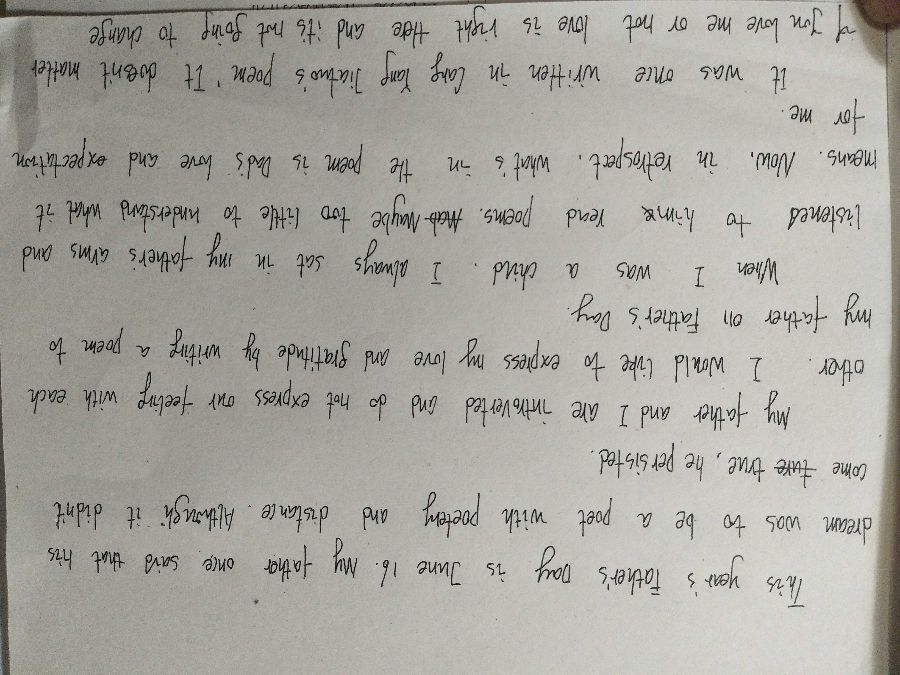 This year's Father's Day is June 16. My father once said that his
dream was to be a poet with poetery and distance. Although it didn't
come ture true, he persisted.
My father and I are introverted and do not express our feeling with each
other. I would like to express my love and gratitude by writing a poem to
my father on Father's Day.
When I was a child. I always sat in my father's arms and
listened to him read poems. Mab Maybe too little to understand what it
means. Now, in retrospect, what's in the poem is Dad's love and expectation
for me.
It was once written in Cang Yang Jiatuo's poem "It doesn't matter
if you love me or not love is right there and it's not going to change